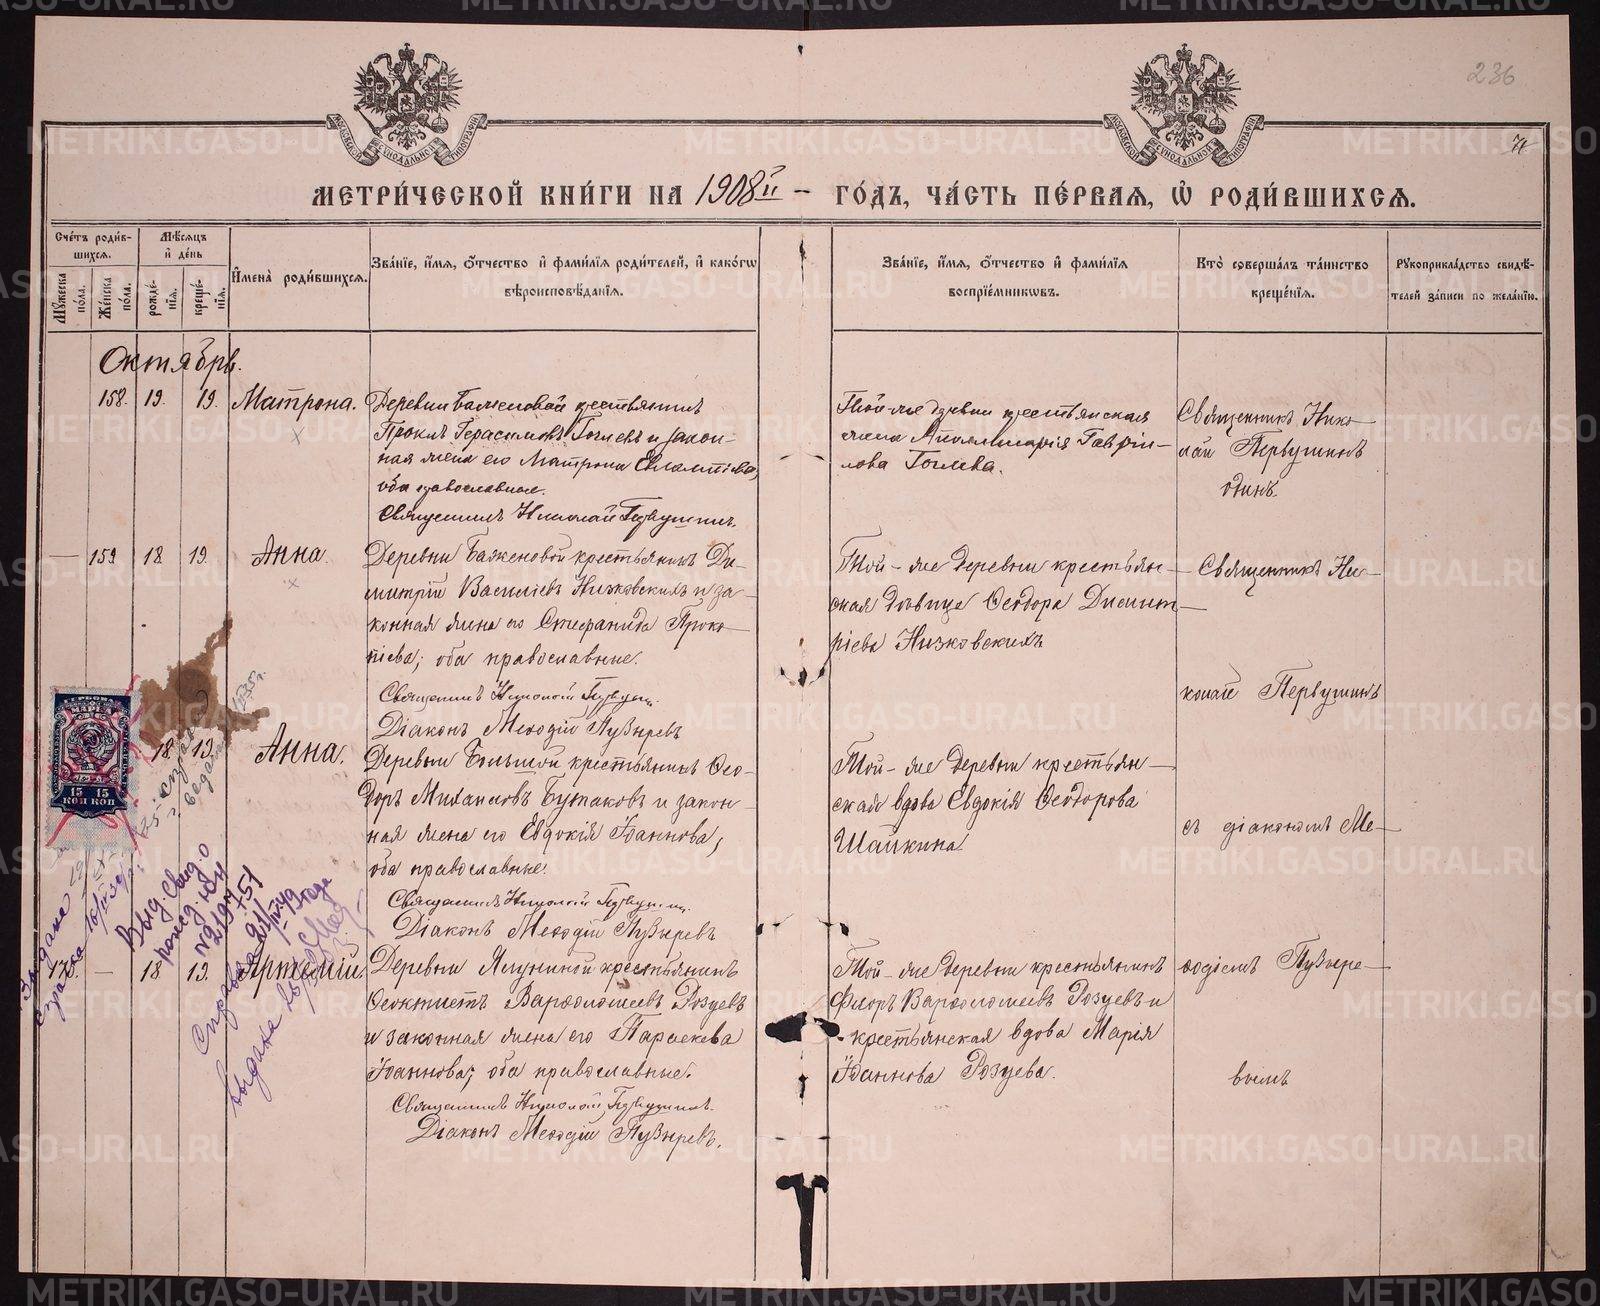 236
МЕТРИ́ЧЕСКОЙ КНИ́ГИ НА 1908й – ГО́ДЪ, ЧА́СТЬ ПЕ́РВАЯ, Ѡ РОДИ́ВШИХСЯ.
Сче́тъ роди́в-
шихся.
Му́жеска пола.
Же́нска по́ла.
Мѣ́сяцъ и де́нь
рожде-
нія.
креще́-
нія.
Имена̀ роди́вшихся.
Зва́ніе, и́мя, о́тчество и фами́лія роди́телей, и како́гѡ
вѣроисповѣ́данія.
Зва́ніе, и́мя, о́тчество и фами́лія
воспріе́мникѡвъ.
Кто̀ соверша́лъ та́инство
креще́нія.
Рукоприкла́дство свидѣ́-
телей за́писи по жела́нію.
Октябрь.
158. 19. 19. Матрона.
Деревни Баженовой крестьянинъ
Проклъ Герасимовъ Гоглевъ и закон-
ная жена его Матрона Евлампіева,
оба православные.
Священникъ Николай Первушинъ.
Той-же деревни крестьянская
жена Аполлинарія Гаврiи-
лова Гоглева.
Священникъ Нико-
лай Первушинъ
одинъ.
— 159 18. 19. Анна.
Деревни Баженовой крестьянинъ Ди-
митрій Василіевъ Низковскихъ и за-
конная жена его Стефанида Проко-
піева; оба православные.
Священникъ Николай Первушинъ.
Діаконъ Меѳодій Пузыревъ
Той-же деревни крестьян-
ская дѣвица Ѳеодора Димит-
ріева Низковскихъ
Священникъ Ни-
колай Первушинъ
18. 19. Анна.
Деревни Большой крестьянинъ Ѳео-
доръ Михаиловъ Бутаковъ и закон-
ная жена его Евдокія Іоаннова;
оба православные.
Священникъ Николай Первушинъ.
Діаконъ Меѳодій Пузыревъ
Той-же деревни крестьян-
ская вдова Евдокія Ѳеодорова
Шайкина
съ діакономъ Ме-
— 18 19. Артемій.
Деревни Ялуниной крестьянинъ
Ѳеоктистъ Варѳоломеевъ Розуевъ
и законная жена его Параскева
Іоаннова; оба православные.
Священникъ Николай Первушинъ.
Діаконъ Меѳодій Пузыревъ.
Той-же деревни крестьянинъ
Флоръ Варѳоломеевъ Розуевъ и
крестьянская вдова Марія
Іоаннова Розуева.
ѳодіемъ Пузыре-
вымъ
15 15
КОП КОП
Выд. Свид. о
рожд.
Справка
выдана
METRIKI.GASO-URAL.RU